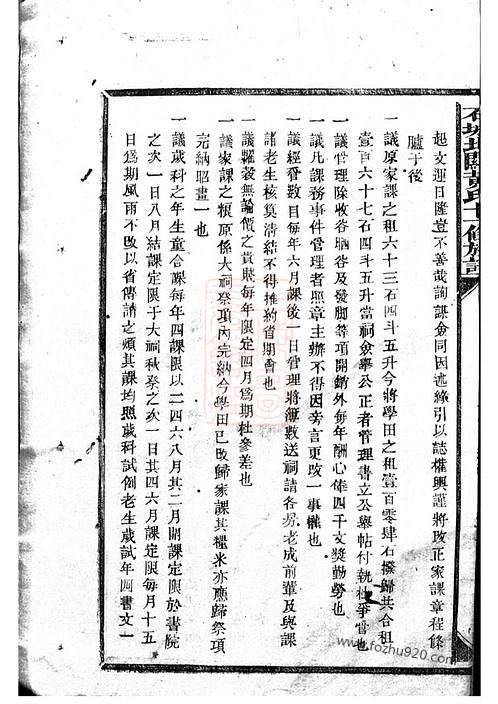 石城北關黃氏十一修族譜
起文運日隆豈不善哉詢謀僉同因述緣引以誌權輿謹將改正家課章程條
臚于後
一議原家課之租六十三石四斗五升今將學田之租壹百零肆石撥歸共合租
壹百六十七石四斗五升當祠僉舉公正者管理書立公舉帖付執杜爭嘗也
一議管理除收谷晒谷及發腳等項開銷外每年酬心俸四千文獎勤勞也
一議凡課務事件管理者照章主辦不得因旁言更改一事權也
一議經眷數目每年六月課後一日管理將簿數送祠請各房老成前輩及與課
諸老生核算清結不得推約省期會也
一議糶穀無論價之貴賤每年限定四月爲期杜參差也
一議家課之糧原係大祠烝項內完納今學田已改歸家課其糧米亦應歸祭項
完納昭畫一也
一議歲科之年生童合課每年四課限以二四六八月其二月開課定限於書院
之次一日八月結課定限于大祠秋烝之次一日其四六月課定限每月十五
日爲期風雨不改以省傳請之煩其課均照歲科試例老生歲試年四書文一
www.fozhu920.com